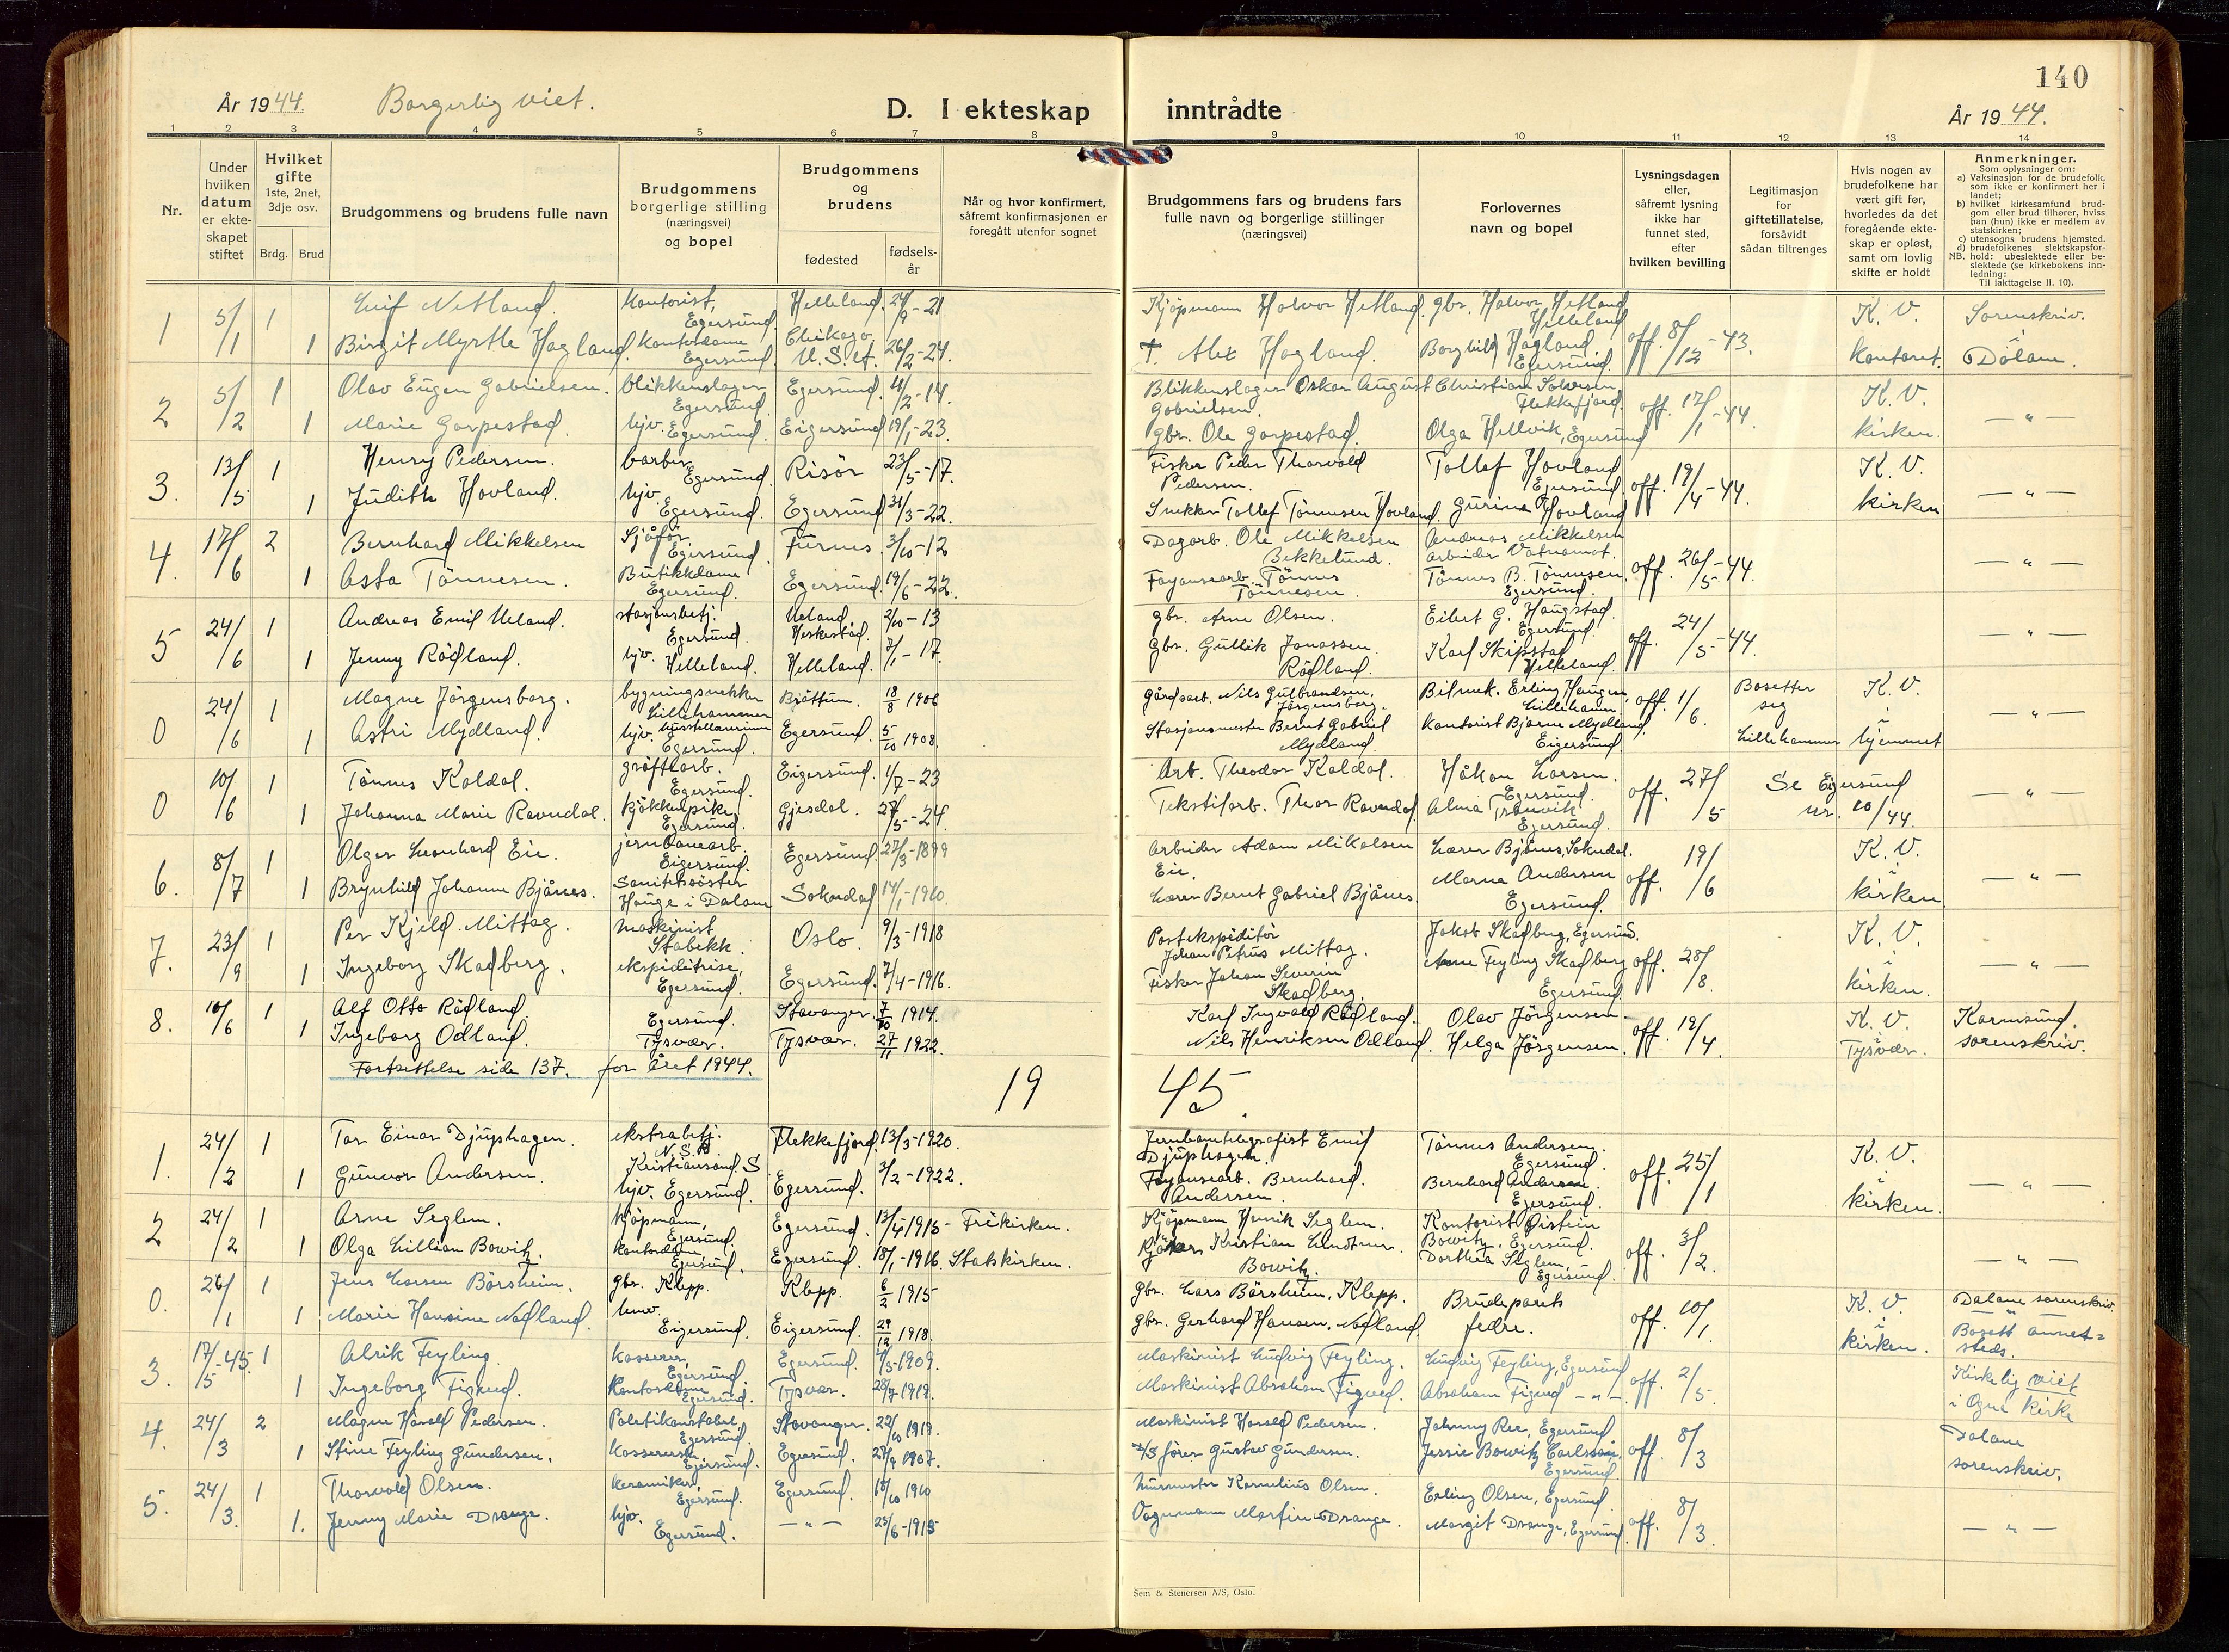 140
År 1944. Borgerlig viet.
D. I ekteskap inntrådte
År 1944.
1 2 3 4 5 6 7 8 9 10 11 12 13 14
Nr.
Under hvilken datum er ekte-skapet stiftet
Hvilket gifte 1ste, 2net, 3dje osv.
Brdg. Brud
Brudgommens og brudens fulle navn
Brudgommens borgerlige stilling (næringsvei) og bopel
Brudgommens og brudens
fødested
fødsels-år
Når og hvor konfirmert, såfremt konfirmasjonen er foregått utenfor sognet
Brudgommens fars og brudens fars fulle navn og borgerlige stillinger (næringsvei)
Forlovernes navn og bopel
Lysningsdagen eller, såfremt lysning ikke har funnet sted, efter hvilken bevilling
Legitimasjon for giftetillatelse, forsåvidt sådan tiltrenges
Hvis nogen av brudefolkene har vært gift før, hvorledes da det foregående ekte-skap er opløst, samt om lovlig skifte er holdt
Anmerkninger.
Som oplysninger om:
a) Vaksinasjon for de brudefolk, som ikke er konfirmert her i landet;
b) hvilket kirkesamfund brud-gom eller brud tilhører, hviss han (hun) ikke er medlem av statskirken;
c) utensogns brudens hjemsted.
d) brudefolkenes slektskapsfor-hold: ubeslektede eller be-slektede (se kirkebokens inn-ledning:
NB.
Til iakttagelse II. 10).
1 5/1 1 Leif Netland. Kontorist, Egersund. Helleland. 24/9-21 Kjøpmann Halvor Hetland. gbr. Halvor Hetland Helleland off. 8/12-43. K. V. i kontoret. Sorenskriv. i Dalane.
1 Birgit Myrtle Hagland. Kontordame Egersund. Chikago. U.S.A. 26/2-24. † Alex Hagland. Borghild Hagland. Egersund.
2 5/2 1 Olav Eugen Gabrielsen. blikkenslager Egersund. Egersund. 4/2-14. Blikkenslager Oskar August Gabrielsen. Christian Salvesen Flekkefjord. off. 17/1-44. K. V. kirken. — " —
1 Marie Garpestad. hjv. Egersund. Eigersund 19/1-23. gbr. Ole Garpestad. Olga Hellvik, Egersund
3. 13/5 1 Henry Pedersen. barber Egersund. Risör 23/5-17. Fisker Peder Thorvald Pedersen. Tollef Hovland Egersund off. 19/4-44. K. V. kirken — " —
1 Judith Hovland. hjv. Egersund. Egersund 31/3-22. Snekker Tollef Tönnesen Hovland. Gurine Hovland
4. 17/6 2 Bernhard Mikkelsen Sjåför, Egersund. Furnes 3/10-12 Dagarb. Ole Mikkelsen Bekkelund. Andreas Mikkelsen arbeider Vatnamot. off. 26/5-44. — " —
1 Asta Tönnesen. Butikkdame Egersund. Egersund. 19/6-22. Fayansearb. Tönnes Tönnesen. Tönnes B. Tönnesen. Egersund.
5 24/6 1 Andreas Emil Ueland. stasjonsbetj. Egersund. Ueland, Heskestad. 2/10-13 gbr. Arne Olsen. Eilert G. Haugstad. Egersund. off. 24/5-44. — " —
1 Jenny Rödland. hjv. Helleland. Helleland. 7/1-17. gbr. Gullik Jonassen Rödland. Karl Skipstad Helleland.
0 24/6 1 Magne Jörgensborg. bygningsnekker Lillehammer Bjöttum. 18/8 1906 Gårdsarb. Nils Gulbrandsen. Jörgensborg. Bilmek. Erling Haugen, Lilleham. off. 1/6. Bosetter seg Lillehammer K. V. i hjemmet — " —
1 Astri Mydland. hjv. Egersund. Egersund. 5/10 1908. Stasjonsmester Bernt Gabriel Mydland. Kontorist Bjarne Mydland, Eigersund.
0 10/6 1 Tönnes Koldal. gröftearb. Egersund. Eigersund. 1/7-23 Arb. Theodor Koldal. Håkon Larsen. Egersund. off. 27/5 Se Eigersund nr. 10/44. — " —
1 Johanna Marie Ravndal. kjökkenpike Egersund. Gjesdal. 27/5-24. Tekstilarb. Thor Ravndal Alma Egersund.
6. 8/7 1 Olger Leonhard Eie. jernbanearb. Eigersund. Egersund. 27/3-1899 Arbeider Adam Mikalsen Eie. Lærer Bjånes, Sokndal. off. 19/6 K. V. i kirken. — " —
1 Brynhild Johanne Bjånes. Sanitetssöster Hauge i Dalane Sokndal 14/1-1910. Lærer Bernt Gabriel Bjånes. Marna Andersen Egersund.
7. 23/9 1 Per Kjeld Mittag. maskinist Stabekk. Oslo. 9/3-1918 Postekspeditör Johan Petrus Mittag. Jakob Skadberg, Egersund. off. 28/8. K. V. i kirken. — " —
1 Ingeborg Skadberg. ekspeditrise, Egersund. Egersund. 7/4-1916. Fisker Johan Severin Skadberg. Anne Feyling Skadberg Egersund.
8. 10/6 1 Alf Otto Rödland. Egersund. Stavanger. 7/10 1914. Karl Ingvald Rödland. Olav Jörgensen. off. 19/4. K. V. i Tysvær. Karmsund. sorenskriv.
1 Ingeborg Odland. Tysvær. Tysvær. 27/11 1922. Nils Henriksen Odland. Helga Jörgensen.
Fortsettelse side 137. for året 1944.
19 45.
1. 24/2 1 Tor Einar Djuphagen. ekstrabetj. N.S.B. Kristiansand. S Flekkefjord. 13/3-1920. Jernbantelegrafist Emil Djuphagen. Tönnes Andersen, Egersund. off. 25/1 K. V. i kirken. — " —
1 Gunvor Andersen. hjv. Egersund. Egersund. 3/2-1922. Fayansearb. Bernhard. Andersen. Bernhard Andersen Egersund.
2 24/2 1 Arne Seglem. Kjöpmann, Egersund. Egersund. 13/4 1915- Frikirken. Kjöpmann Henrik Seglem. Kontorist Öistein Bowitz, Egersund. off. 3/2. — " —
1 Olga Lillian Bowitz. kontordame, Egersund. Egersund. 18/1-1916. Statskirken. Kristian Bowitz. Dorthea Seglem, Egersund.
0. 26/1 1 Jens Larsen Börsheim. gbr. Klepp. Klepp. 6/2 1915 gbr. Lars Börsheim, Klepp. Brudeparets fedre. off. 10/1. K. V. i kirken. Dalane sorenskriv. — " — Bosatt annet=steds.
1 Marie Hansine Nodland. hmv. Eigersund. Eigersund. 29/12 1918. gbr. Gerhard Hansen. Nodland
3. 17/5-45 1 Alrik Feyling. Kasserer, Egersund. Egersund. 4/5-1909. Maskinist Ludvig Feyling. Ludvig Feyling, Egersund off. 2/5. Kirkelig viet i Ogna kirke
1 Ingeborg Figved. Kontordame Egersund. Tysvær. 28/7-1919. Maskinist Abraham Figved. Abraham Figved — " —
4. 24/3 2 Magne Harald Pedersen. Politikonstabel, Egersund. Stavanger. 22/10 1919. Maskinist Harald Pedersen. Johnny Ree, Egersund off. 8/3 Dalane sorenskriv.
1 Stine Feyling Gundersen. Kassererske, Egersund. Egersund. 27/9 1907. förer Gustav Gundersen. Jessie Bowitz Egersund
5. 24/3. 1 Thorvald Olsen. keramiker, Egersund. Egersund. 18/10 1910 Murmester Kornelius Olsen. Erling Olsen, Egersund. off. 8/3. — " —
1. Jenny Marie Drange. hjv. Egersund. — " — 25/6-1915 Vognmann Martin Drange. Margit Drange, Egersund
Sem & Stenersen A/S, Oslo.